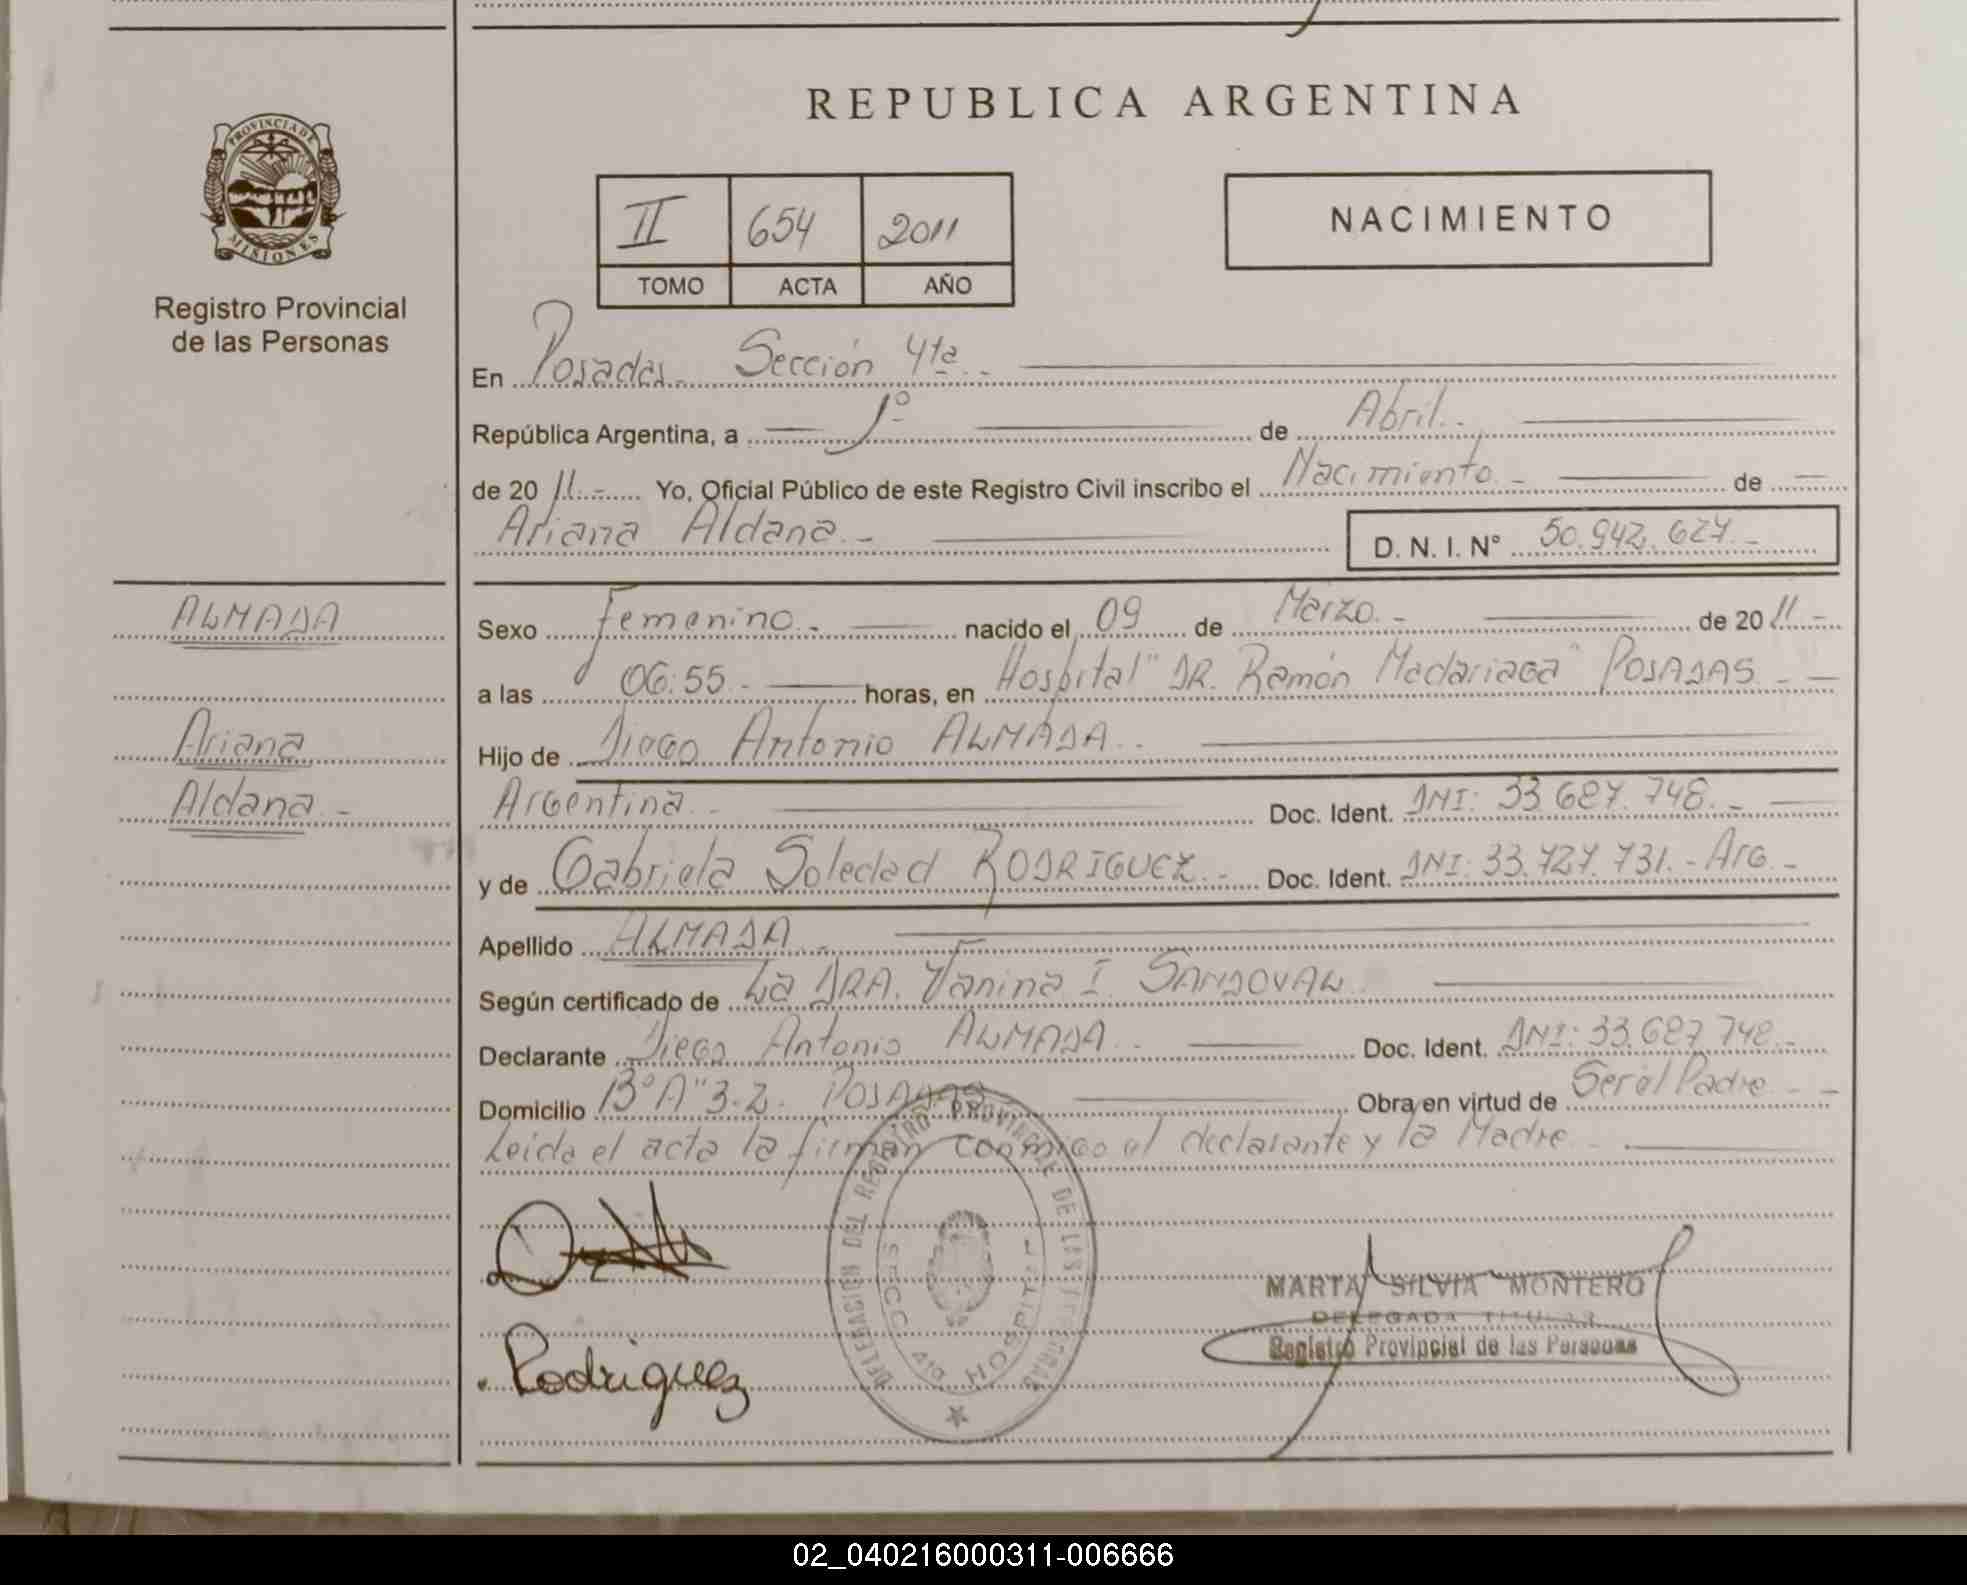 REPUBLICA ARGENTINA
PROVINCIA DE MISIONES
Registro Provincial
de las Personas
II 654 2011
TOMO ACTA AÑO
NACIMIENTO
En Posadas Sección 4ta
República Argentina, a 1º de Abril
de 20 11 Yo, Oficial Público de este Registro Civil inscribo el Nacimiento de
Ariana Aldana D. N. I. Nº 50.942.627
ALMADA
Ariana
Aldana
Sexo Femenino nacido el 09 de Marzo de 20 11
a las 06:55 horas, en Hospital "DR. Ramón Madariaga" POSADAS
Hijo de Diego Antonio ALMADA
Argentina Doc. Ident. DNI: 33.687.748
y de Gabriela Soledad RODRIGUEZ Doc. Ident. DNI: 33.727.731.- Arg.-
Apellido ALMADA
Según certificado de La DRA. Vanina I. SANDOVAL
Declarante Diego Antonio ALMADA Doc. Ident. DNI: 33.687.748
Domicilio Bº"A" 3-2- POSADAS Obra en virtud de Ser el Padre
Leida el acta la firman conmigo el declarante y la Madre
DELEGACION DEL REGISTRO PROVINCIAL DE LAS PERSONAS
SECC. 4ta HOSPITAL
Rodriguez
MARTA SILVIA MONTERO
DELEGADA TITULAR
Registro Provincial de las Personas
02_040216000311-006666